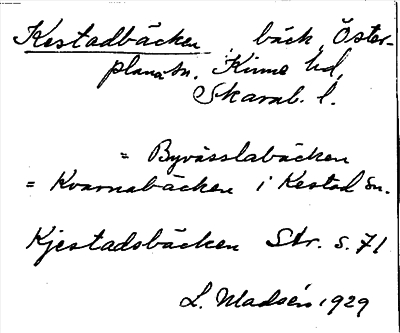 Kestadbäcken, bäck, Öster-
plana sn. Kinne hd,
Skarab. l.
= Byvässlabäcken
= Kvarnabäcken i Kestad sn.
Kjestadsbäcken Str. s. 71
L. Madsén 1929